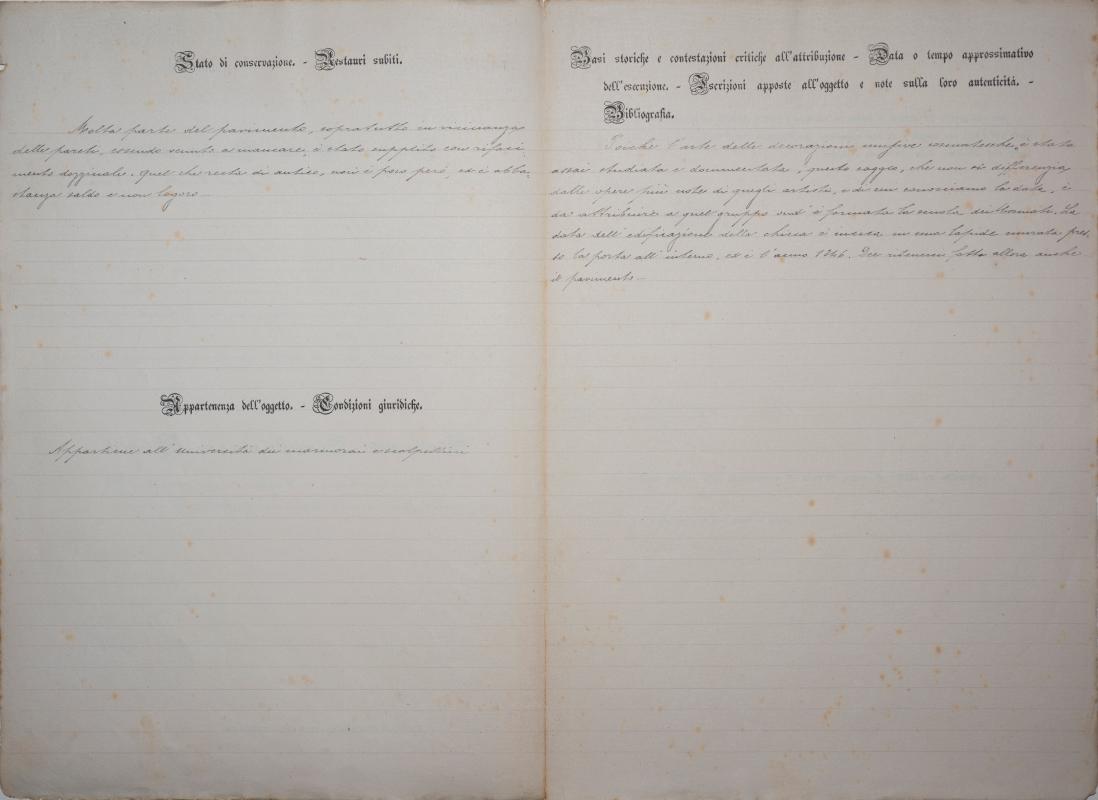 Stato di conservazione. - Restauri subiti.
Molta parte del pavimento, sopratutto in vicinanza
delle pareti, essendo venuta a mancare, è stato supplito con rifaci-
mento dozzinale. Quel che resta di antico, non è poco però, ed è abba-
stanza saldo e non logoro
Appartenenza dell'oggetto. - Condizioni giuridiche.
Appartiene all'università dei marmorai e scalpellini
Basi storiche e contestazioni critiche all'attribuzione - Data o tempo approssimativo
dell'esecuzione. - Iscrizioni apposte all'oggetto e note sulla loro autenticità. -
Bibliografia.
Poichè l'arte delle decorazioni musive cosmatesche, è stata
assai studiata e documentata, questo saggio, che non si differenzia
dalle opere più note di quegli artisti, e di cui conosciamo la data, è
da attribuire a quel gruppo ond'è formata la scuola La
data dell'edificazione della chiesa è incisa in una lapide murata pres-
so la porta all'interno, ed è l'anno 1246. ritenersi fatto allora anche
il pavimento -